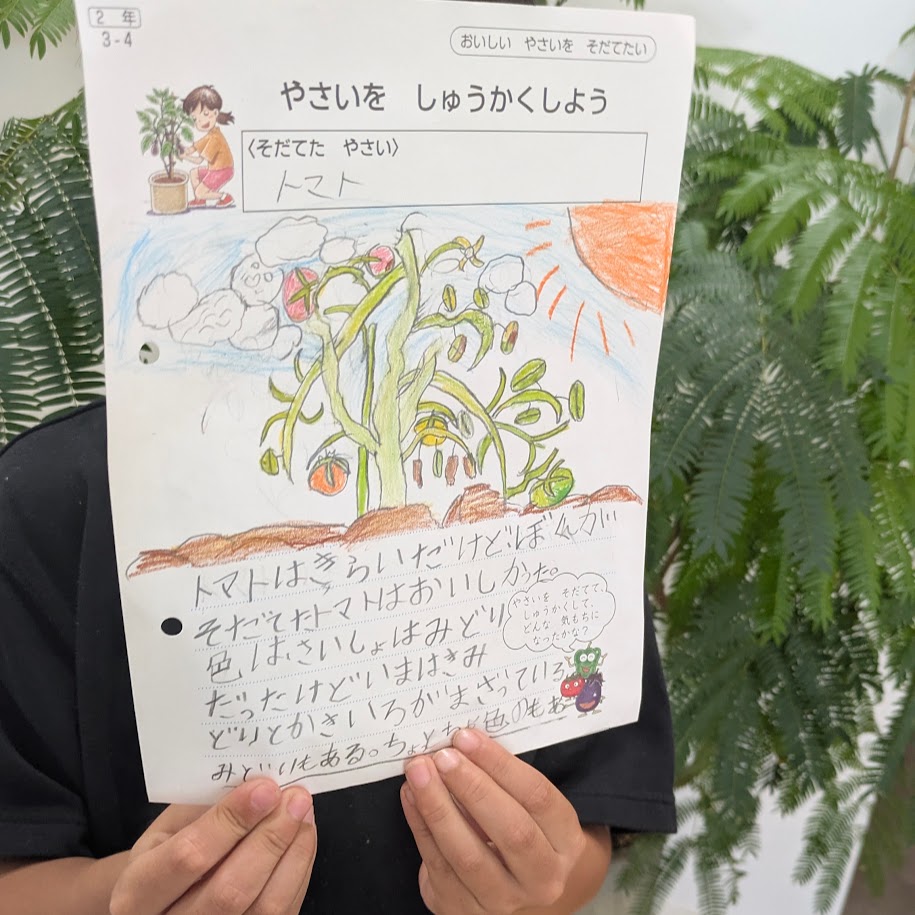 2 年
3-4
おいしい やさいを そだてたい
やさいを しゅうかくしよう
〈そだてた やさい〉
トマト
トマトはきらいだけどぼくが
そだてたトマトはおいしかった。
色は、さいしょはみどり
だったけどいまはきみ
どりとかさいろがまざっている
みどりもある。ちょっと
色のもあ
やさいを そだてて、
しゅうかくして、
どんな 気もちに
なったかな?